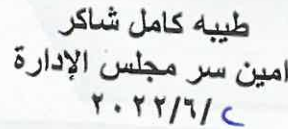 طيبه كامل شاكر
امين سر مجلس الإدارة
٢٠٢٢/٦/